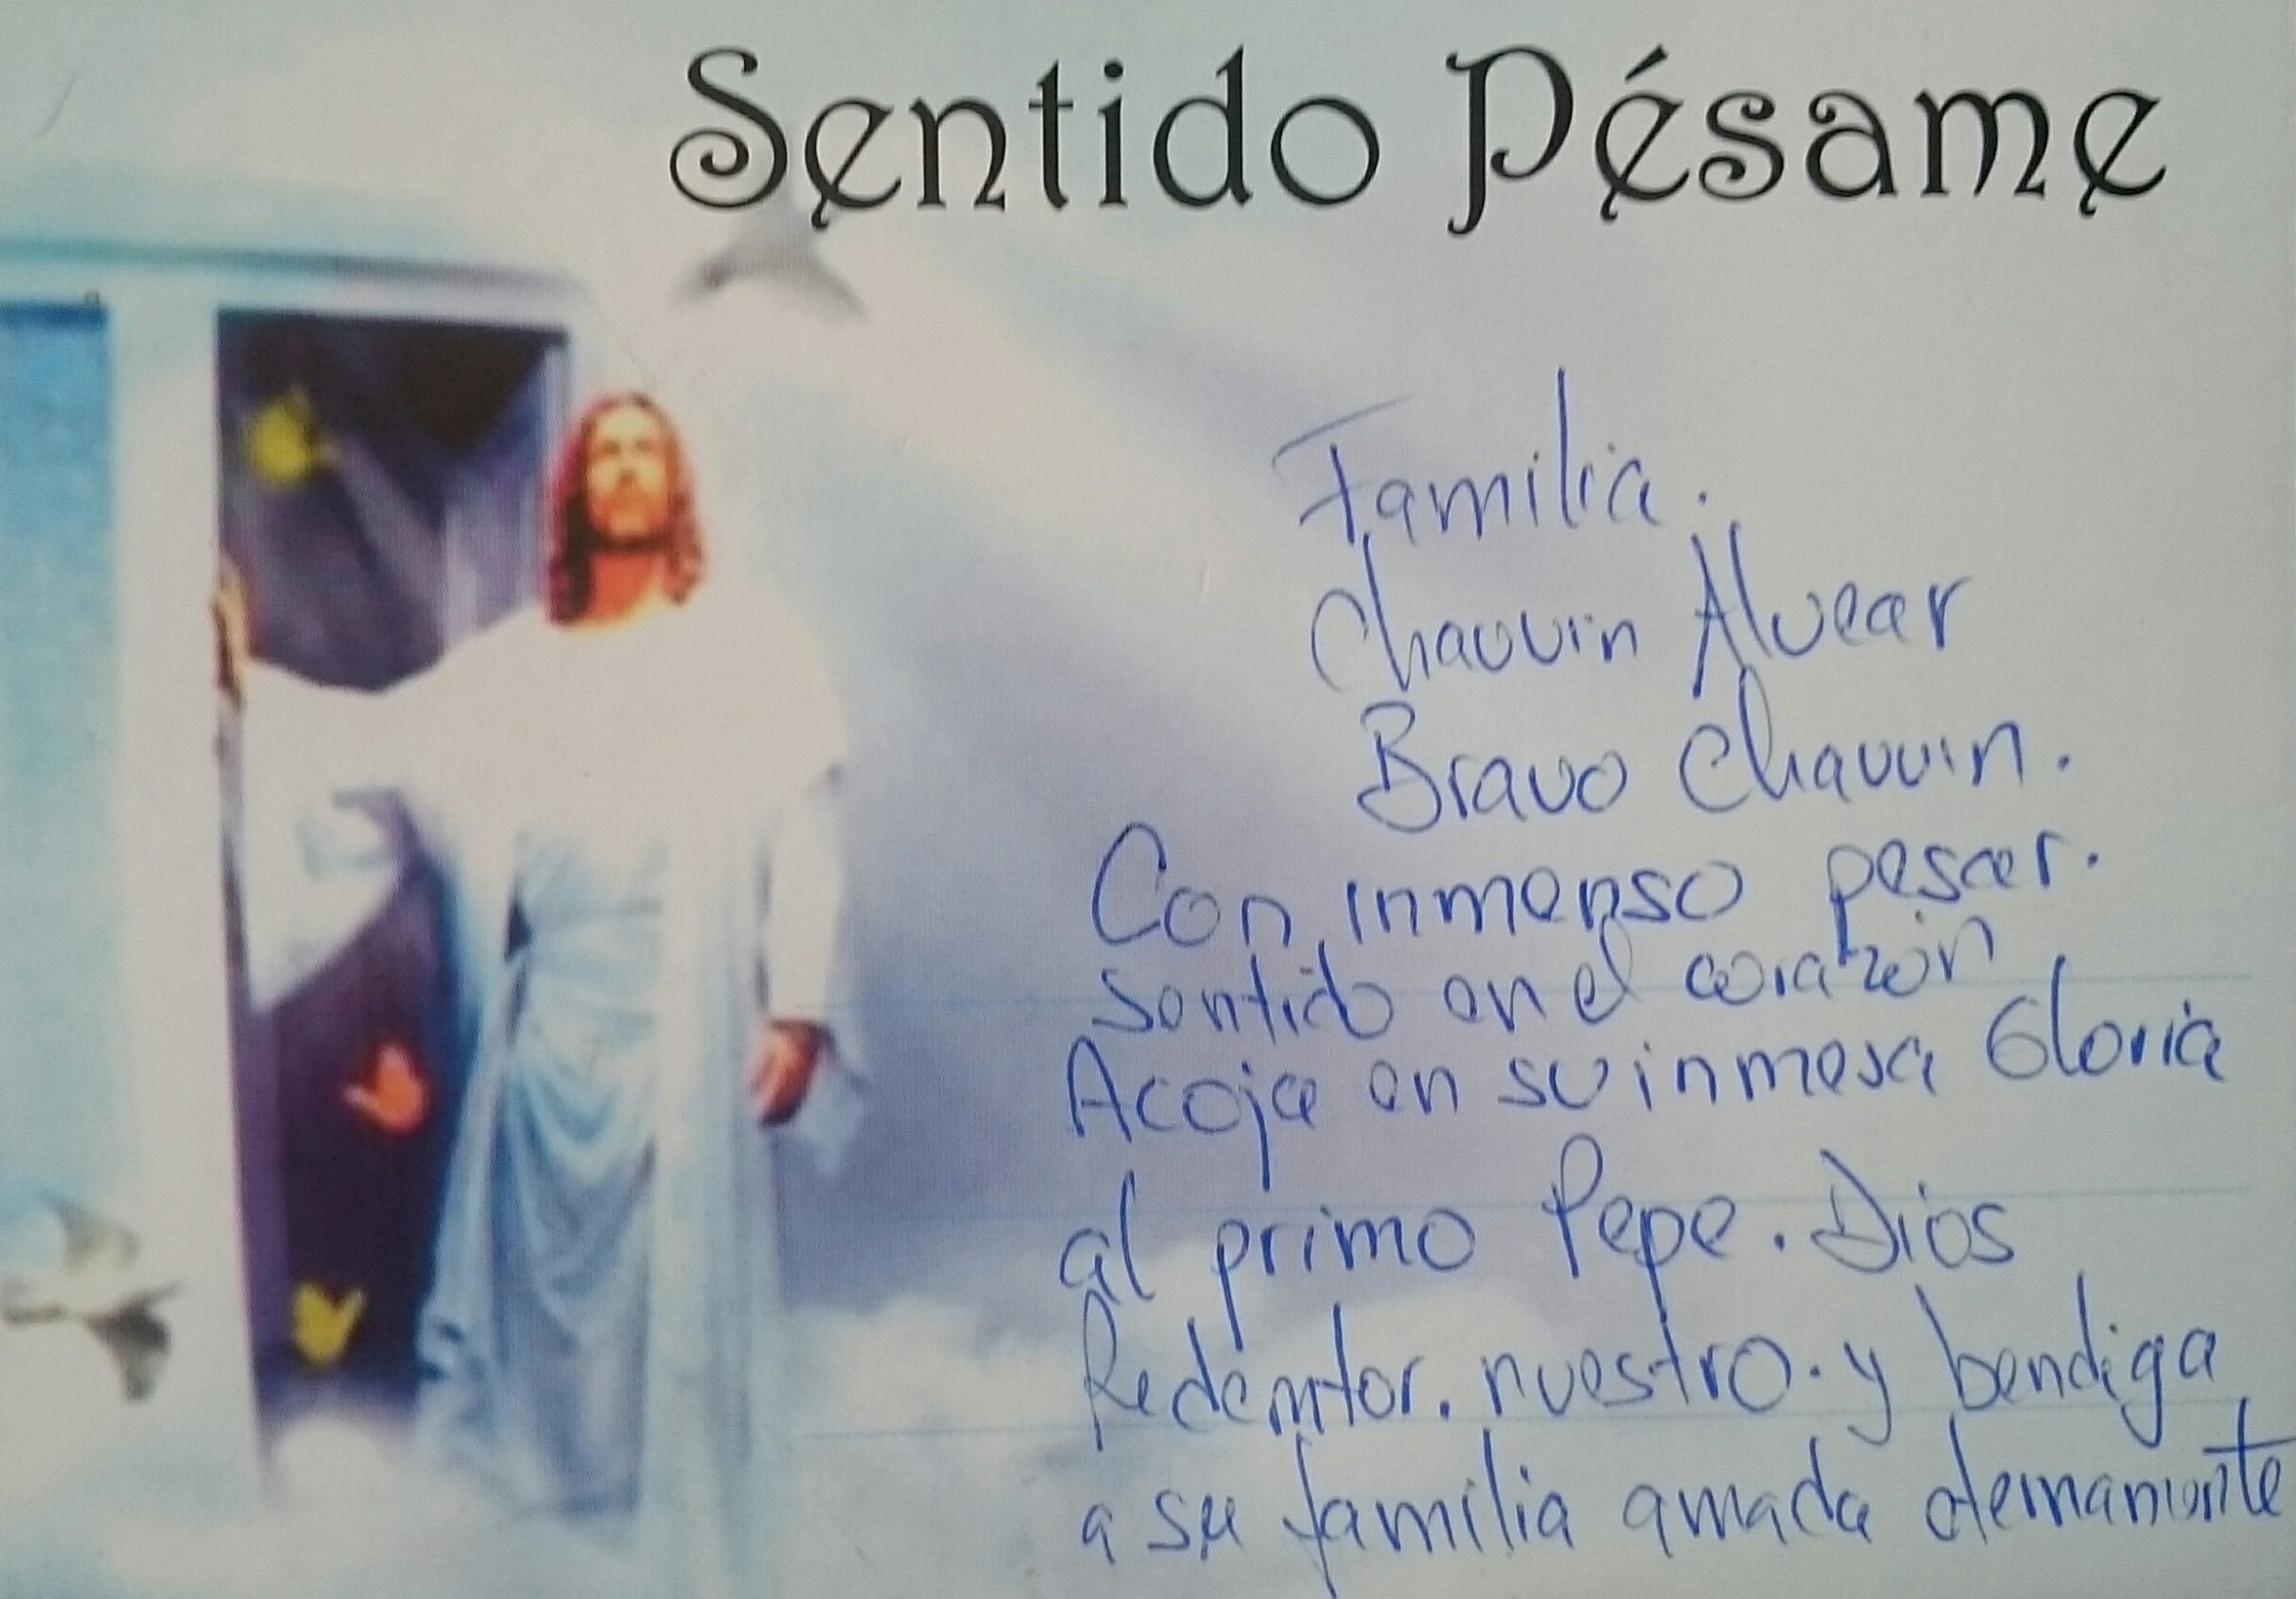 Sentido Pésame
Familia.
Chauvin Alvear
Bravo Chauvin.
Con inmenso pesar.
Sentido en el corazón
Acoja en su inmesa Gloria
al primo Pepe. Dios
Redemtor. nuestro. y bendiga
a su familia amada eternamente